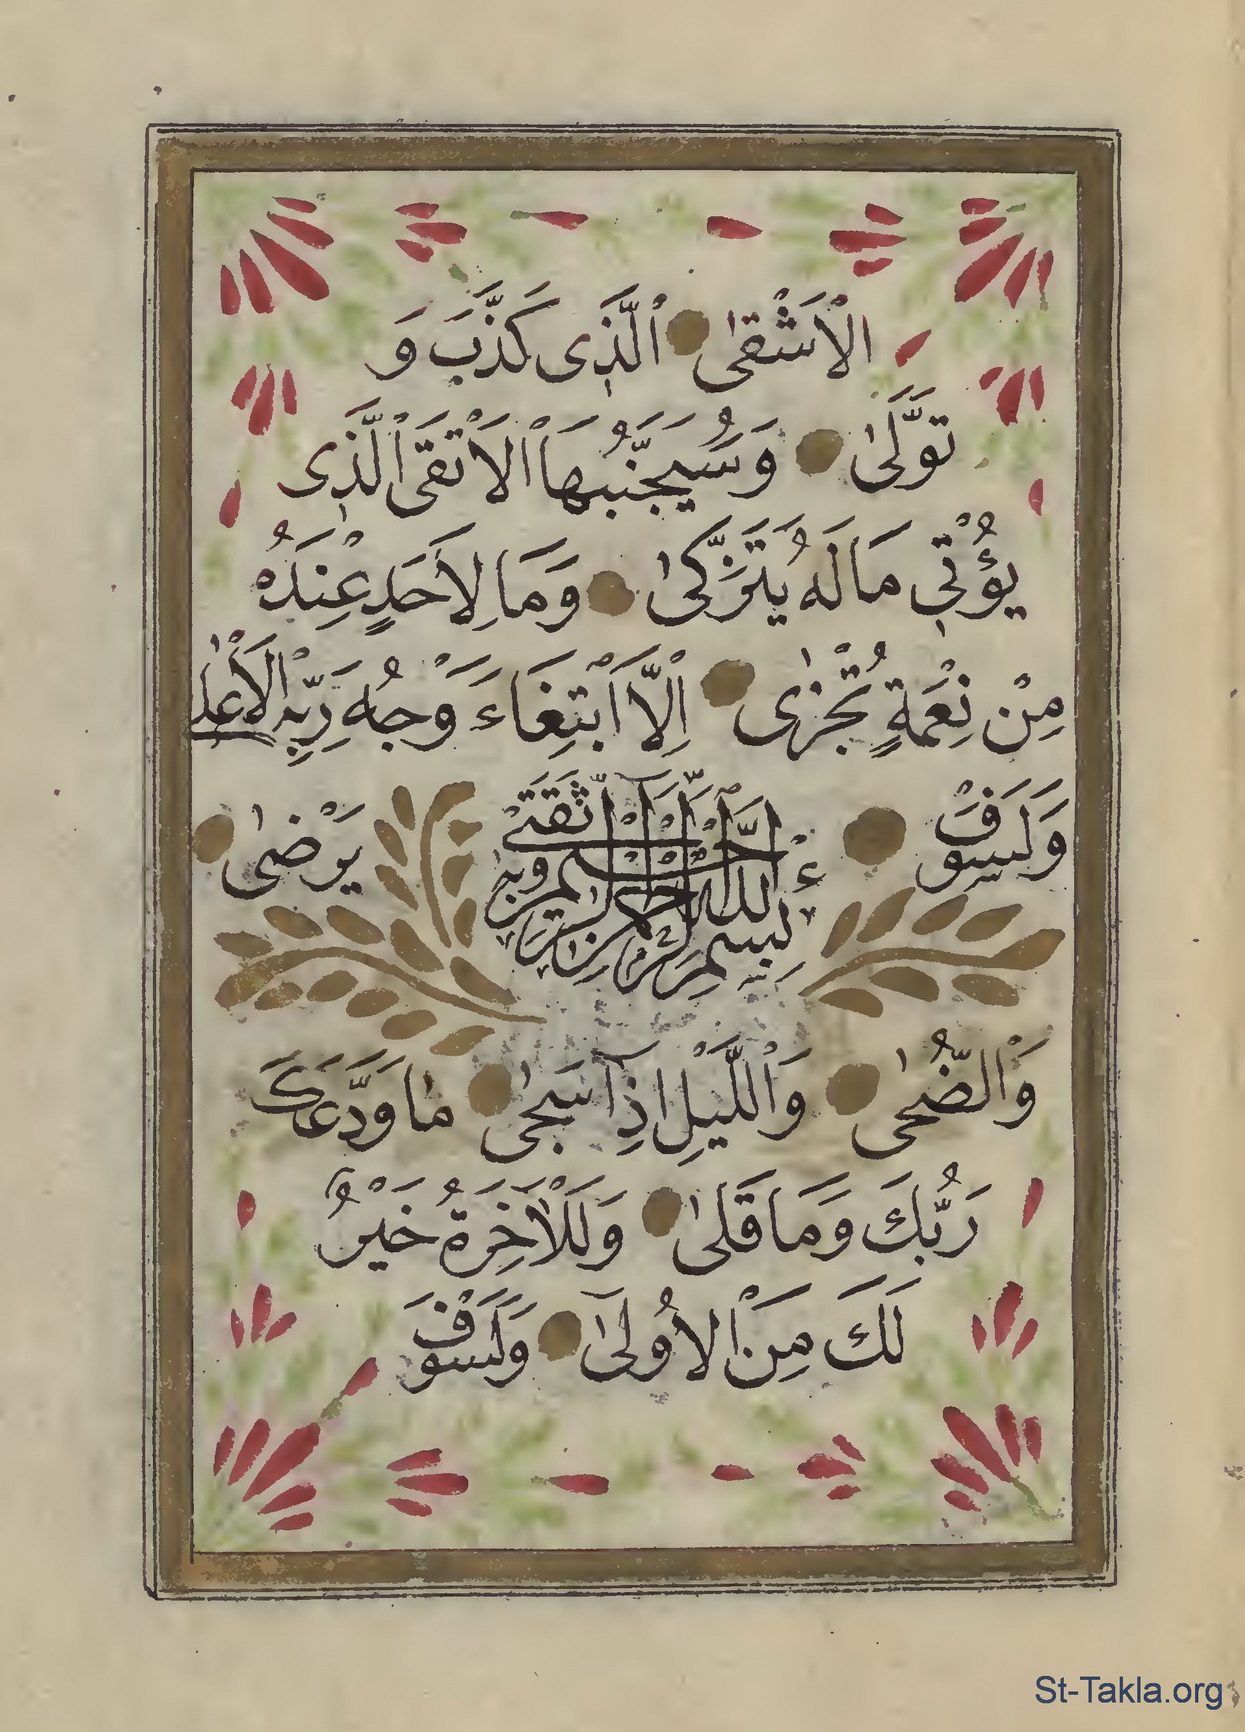 الْاَشْقٰى الَّذٖى كَذَّبَ وَ
تَوَلّٰى وَسَيُجَنَّبُهَا الْاَتْقَى الَّذٖى
يُؤْتٖى مَالَهُ يَتَزَكّٰى وَمَا لِاَحَدٍ عِنْدَهُ
مِنْ نِعْمَةٍ تُجْزٰى اِلَّا ابْتِغَاءَ وَجْهِ رَبِّهِ الْاَعْلٰى
وَلَسَوْفَ يَرْضٰى
بِسْمِ اللّٰهِ الرَّحْمٰنِ الرَّحٖيمِ وَبِهٖ ثِقَتٖى
وَالضُّحٰى وَالَّيْلِ اِذَا سَجٰى مَا وَدَّعَكَ
رَبُّكَ وَمَا قَلٰى وَلَلْاٰخِرَةُ خَيْرٌ
لَكَ مِنَ الْاُولٰى وَلَسَوْفَ
St-Takla.org